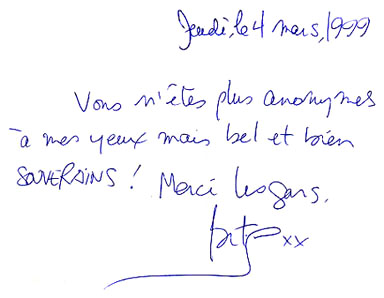 Jeudi, le 4 mars, 1999
Vous n'êtes plus anonymes
à mes yeux mais bel et bien
SOUVERAINS ! Merci les gars.
xx